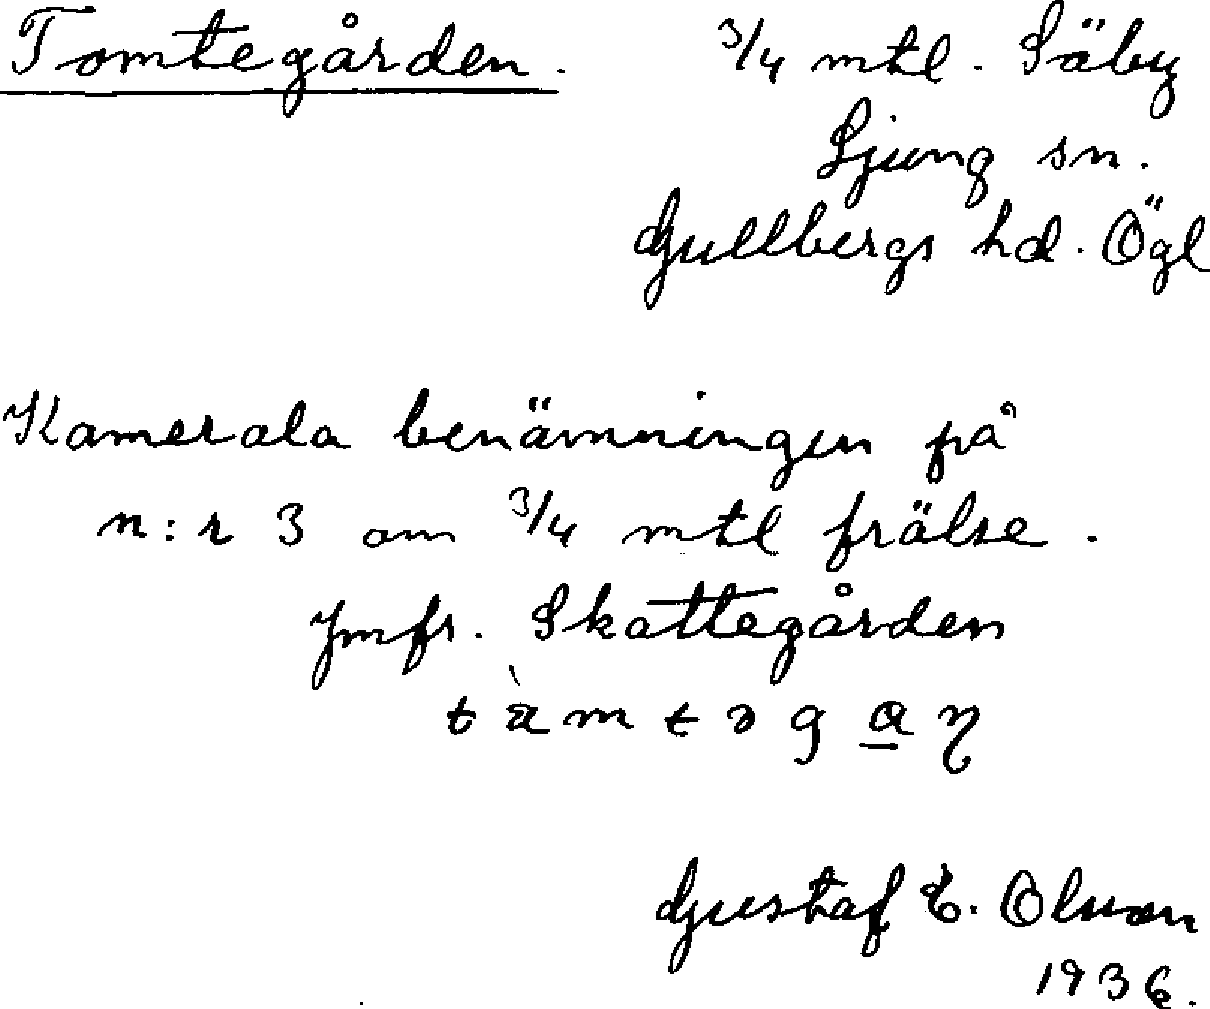 Tomtegården. 3/4 mtl. Säby
Ljung sn.
Gullbergs hd. Ögl
Kamerala benämningen på
n:r 3 om 3/4 mtl frälse.
Jmfr. Skattegården
Gustaf E. Olsson
1936.